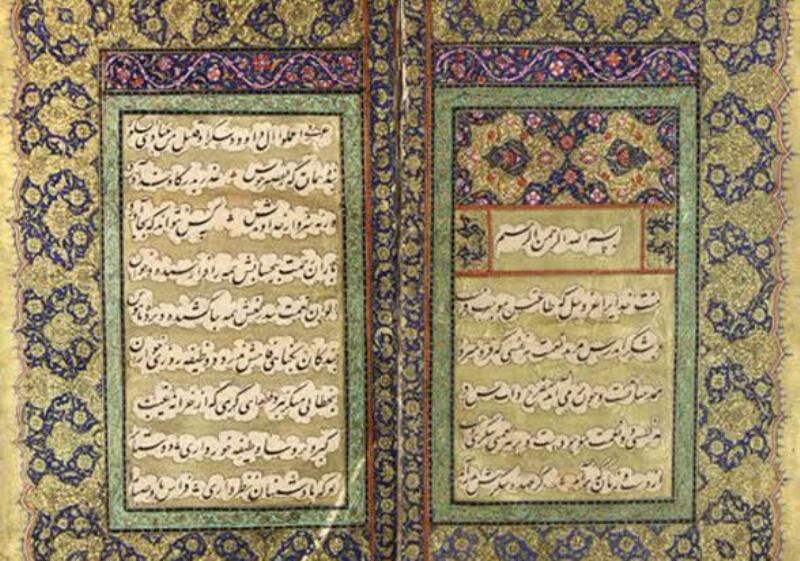 بسم الله الرحمن الرحیم
منت خدایرا عز و جل که طاعتش موجب قربت
و بشکر اندرش مزید نعمت هر نفسی که فرو میرود
ممد حیاتست و چون بر می آید مفرح ذات پس در
هر نفسی دو نعمت موجودست و بر هر نعمتی شکری
از دست و زبان که برآید کز عهده شکرش بدر آید
اعملوا آل داود شکرا و قلیل من عبادی
بنده همان که ز تقصیر خویش عذر بدرگاه خدا آورد
ورنه سزاوار خداوندیش کس نتواند که بجا آورد
باران رحمت بیحسابش همه را رسیده و خوان
الوان نعمت بیدریغش همه جا کشیده و پرده ناموس
بندگان بگناه فاحش ندرد و وظیفه روزی خواران
بخطای منکر نبرد ای کریمی که از خزانه غیب
کبر و ترسا وظیفه خور داری
تو که با دشمنان نظر داری فراش باد صبا